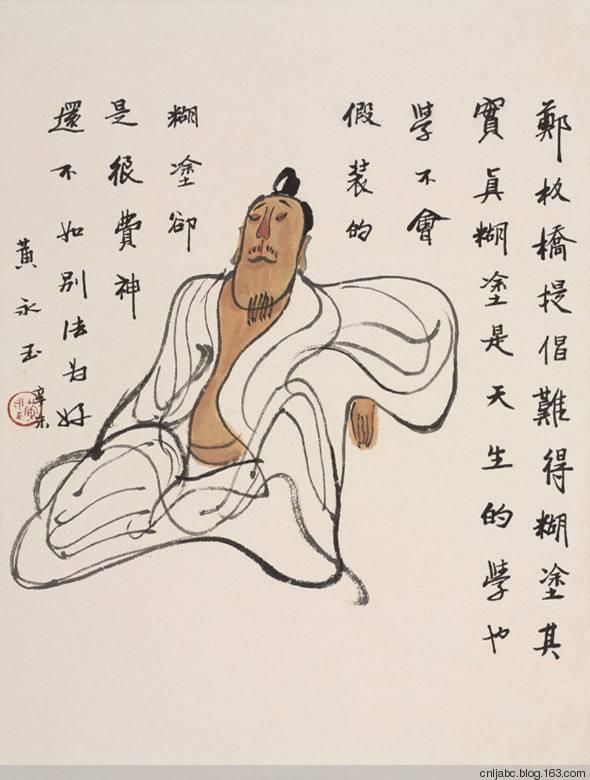 鄭板橋提倡難得糊塗其
實真糊塗是天生的學也
學不會
假裝的
糊塗卻
是很費神
還不如別法为好
黃永玉
辛未
cnljabc.blog.163.com